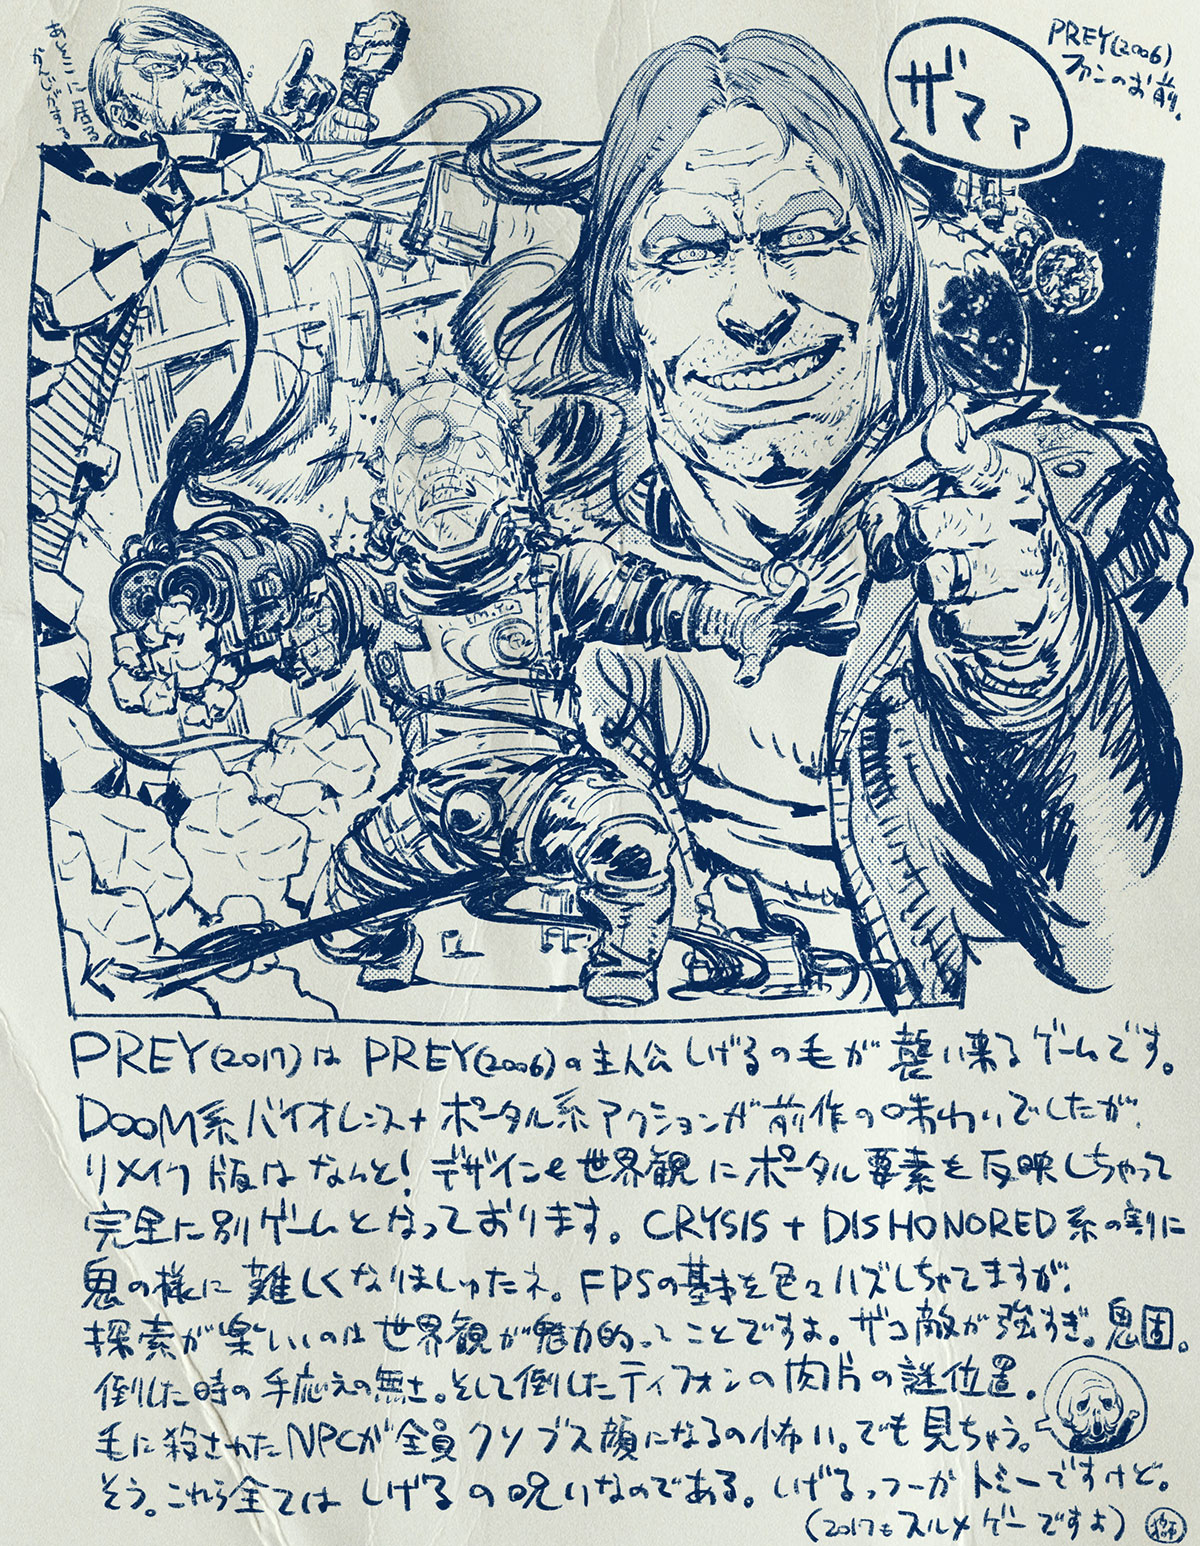 あとここに居る
かんじがする
ザマァ
PREY(2006)
ファンのお前。
PREY(2017)は PREY(2006)の主人公しげるの毛が襲い来るゲームです。
DOOM系バイオレンス+ポータル系アクションが前作の味わいでしたが、
リメイク版はなんと!デザインと世界観にポータル要素を反映しちゃって
完全に別ゲームとなっております。CRYSIS + DISHONORED系の割に
鬼の様に難しくなりましたネ。FPSの基本を色々ハズしちゃてますが、
探索が楽しいのは世界観が魅力的ってことですよ。ザコ敵が強すぎ。鬼固。
倒した時の手応えの無さ。そして倒したティフォンの肉片の謎位置。
毛に殺されたNPCが全員クソブス顔になるの怖い。でも見ちゃう。
そう。これら全てはしげるの呪いなのである。しげるっつーかトミーですけど。
(2017もスルメゲーですよ)